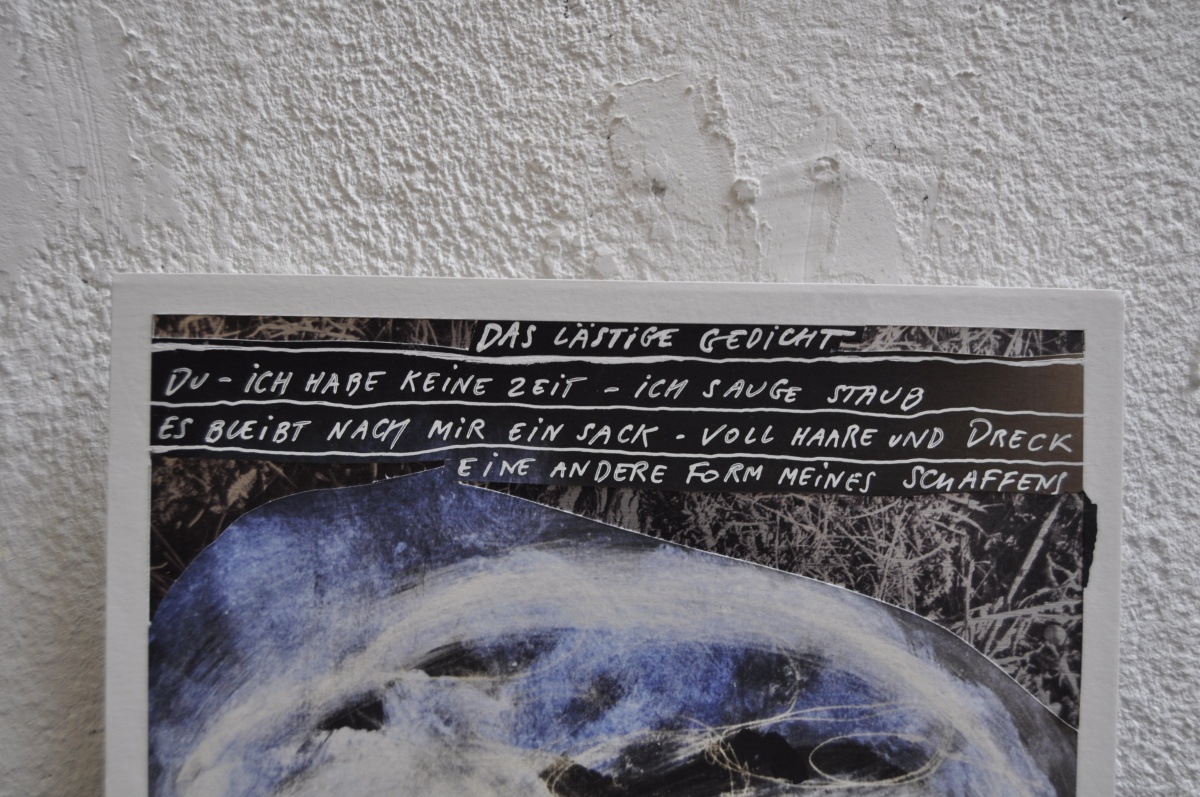 DAS LÄSTIGE GEDICHT
DU - ICH HABE KEINE ZEIT - ICH SAUGE STAUB
ES BLEIBT NACH MIR EIN SACK - VOLL HAARE UND DRECK
EINE ANDERE FORM MEINES SCHAFFENS